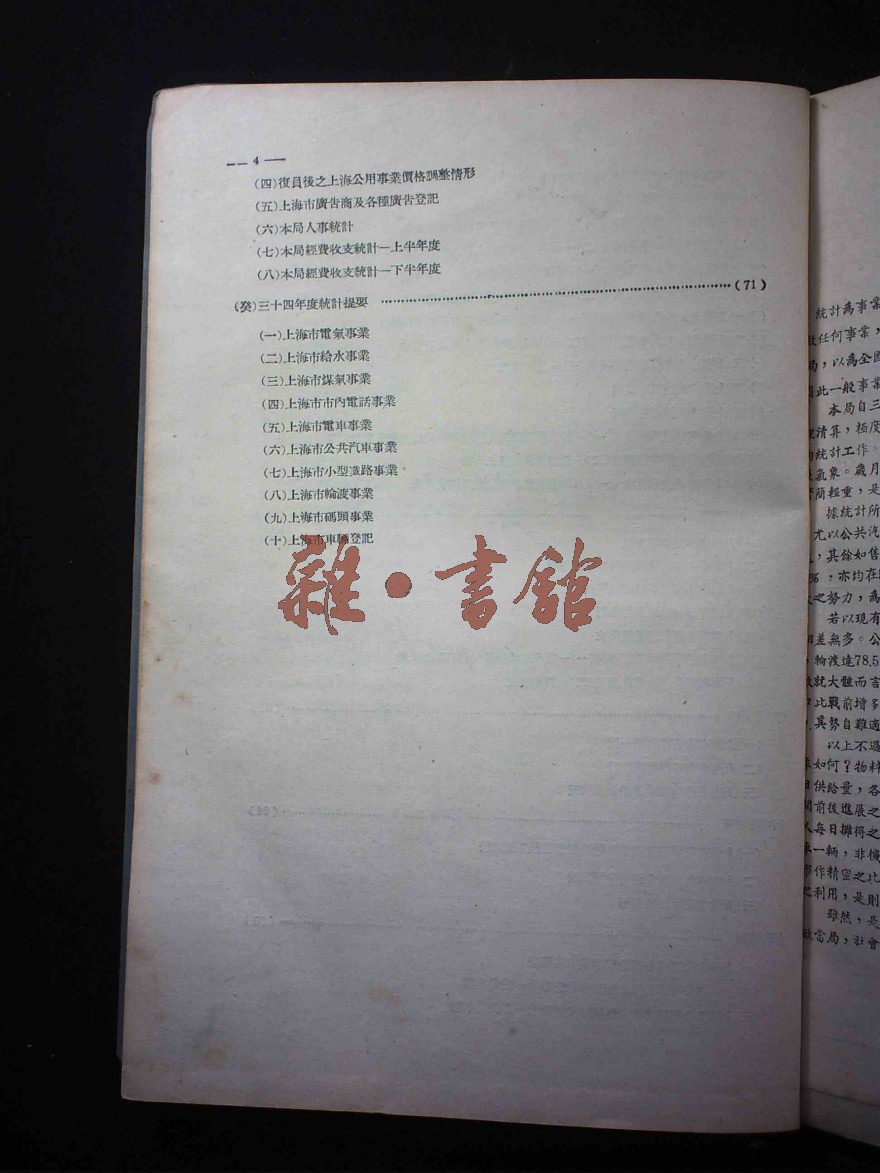 — 4 —
(四)復員後之上海公用事業價格調整情形
(五)上海市廣告商及各種廣告登記
(六)本局人事統計
(七)本局經費收支統計—上半年度
(八)本局經費收支統計—下半年度
(癸)三十四年度統計提要 ……………………………………………(71)
(一)上海市電氣事業
(二)上海市給水事業
(三)上海市煤氣事業
(四)上海市市內電話事業
(五)上海市電車事業
(六)上海市公共汽車事業
(七)上海市小型鐵路事業
(八)上海市輪渡事業
(九)上海市碼頭事業
(十)上海市車輛登記
雜·書館
統計為事業
任何事業,
,以為全國
此一般事業
本局自三
清算,極度
統計工作。
氣象。歲月
簡輕重,是
據統計所
尤以公共汽
,其餘如售
%,亦均在
之努力,為
若以現有
差無多。公
輪渡達78.5
就大體而言
此戰前增多
其勢自難適
以上不過
如何?物料
供給量,各
前後進展之
每日攤得之
一輛,非機
作精密之比
之利用,是則
雖然,是
當局,社會